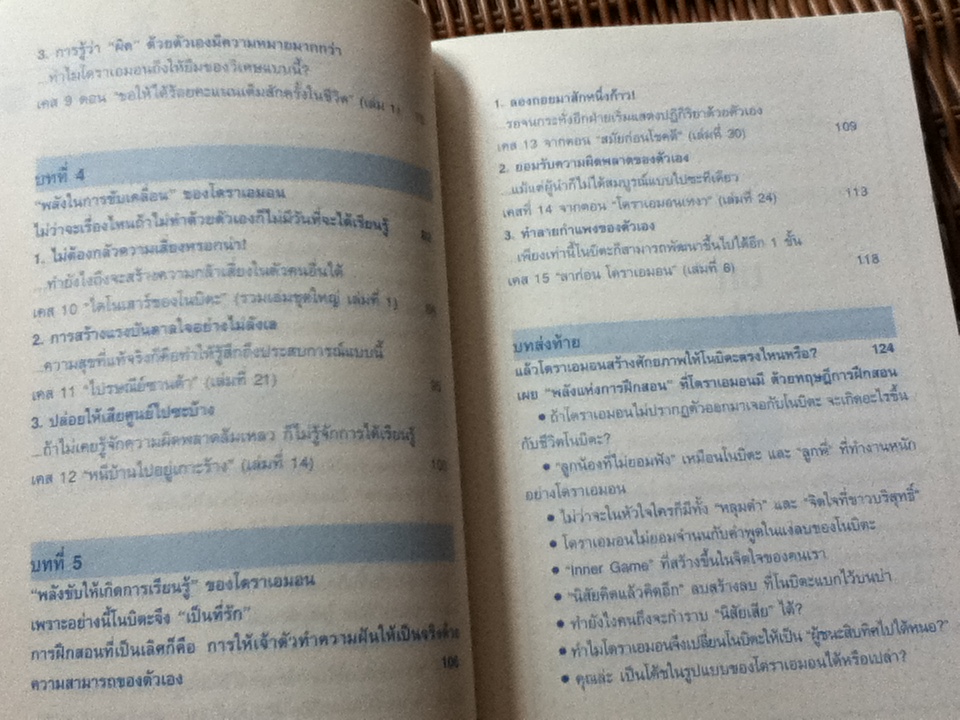 3. การรู้ว่า "ผิด" ด้วยตัวเองมีความหมายมากกว่า
...ทำไมโดราเอมอนถึงให้ยืมของวิเศษแบบนี้?
เคส 9 ตอน "ขอให้ได้ร้อยคะแนนเต็มสักครั้งในชีวิต" (เล่ม 1)
บทที่ 4
"พลังในการขับเคลื่อน" ของโดราเอมอน
ไม่ว่าจะเรื่องไหนถ้าไม่ทำด้วยตัวเองก็ไม่มีวันที่จะได้เรียนรู้
1. ไม่ต้องกลัวความเสี่ยงหรอกน่า!
...ทำยังไงถึงจะสร้างความกล้าเสี่ยงในตัวคนอื่นได้
เคส 10 "ไดโนเสาร์ของโนบิตะ" (รวมเล่มชุดใหญ่ เล่มที่ 1)
2. การสร้างแรงบันดาลใจอย่างไม่ลังเล
...ความสุขที่แท้จริงก็คือทำให้รู้สึกถึงประสบการณ์แบบนี้
เคส 11 "ไปรษณีย์ซานต้า" (เล่มที่ 21)
3. ปล่อยให้เสียศูนย์ไปซะบ้าง
...ถ้าไม่เคยรู้จักความผิดพลาดล้มเหลว ก็ไม่รู้จักการได้เรียนรู้
เคส 12 "หนีบ้านไปอยู่เกาะร้าง" (เล่มที่ 14)
บทที่ 5
"พลังขับให้เกิดการเรียนรู้" ของโดราเอมอน
เพราะอย่างนี้โนบิตะจึง "เป็นที่รัก"
การฝึกสอนที่เป็นเลิศก็คือ การให้เจ้าตัวทำความฝันให้เป็นจริงด้วย
ความสามารถของตัวเอง 106
1. ลองถอยมาสักหนึ่งก้าว!
...รอจนกระทั่งอีกฝ่ายเริ่มแสดงปฏิกิริยาด้วยตัวเอง
เคส 13 จากตอน "สมัยก่อนโชคดี" (เล่มที่ 30) 109
2. ยอมรับความผิดพลาดของตัวเอง
...แม้แต่ผู้นำก็ไม่ได้สมบูรณ์แบบไปซะทีเดียว
เคสที่ 14 จากตอน "โดราเอมอนเหงา" (เล่มที่ 24) 113
3. ทำลายกำแพงของตัวเอง
...เพียงเท่านี้โนบิตะก็สามารถพัฒนาขึ้นไปได้อีก 1 ขั้น
เคส 15 "ลาก่อน โดราเอมอน" (เล่มที่ 6) 118
บทส่งท้าย
แล้วโดราเอมอนสร้างศักยภาพให้โนบิตะตรงไหนหรือ? 124
เผย "พลังแห่งการฝึกสอน" ที่โดราเอมอนมี ด้วยทฤษฎีการฝึกสอน
● ถ้าโดราเอมอนไม่ปรากฏตัวออกมาเจอกับโนบิตะ จะเกิดอะไรขึ้น
กับชีวิตโนบิตะ?
● "ลูกน้องที่ไม่ยอมฟัง" เหมือนโนบิตะ และ "ลูกพี่" ที่ทำงานหนัก
อย่างโดราเอมอน
● ไม่ว่าจะในหัวใจใครก็มีทั้ง "หลุมดำ" และ "จิตใจที่ขาวบริสุทธิ์"
● โดราเอมอนไม่ยอมจำนนกับคำพูดในแง่ลบของโนบิตะ
● "Inner Game" ที่สร้างขึ้นในจิตใจของคนเรา
● "นิสัยคิดแล้วคิดอีก" ลบสร้างลบ ที่โนบิตะแบกไว้บนบ่า
● ทำยังไงคนถึงจะกำราบ "นิสัยเสีย" ได้?
● ทำไมโดราเอมอนจึงเปลี่ยนโนบิตะให้เป็น "ผู้ชนะสิบทิศไปได้หนอ?"
● คุณล่ะ เป็นโค้ชในรูปแบบของโดราเอมอนได้หรือเปล่า?